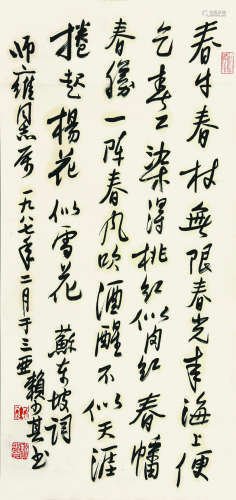 春牛春杖無限春光来海上便
乞春工染得桃红似肉红春幡
春勝一阵春风吹酒醒不似天涯
捲起楊花似雪花 蘇东坡词
師雍 一九八七年二月于三亜賴少其书